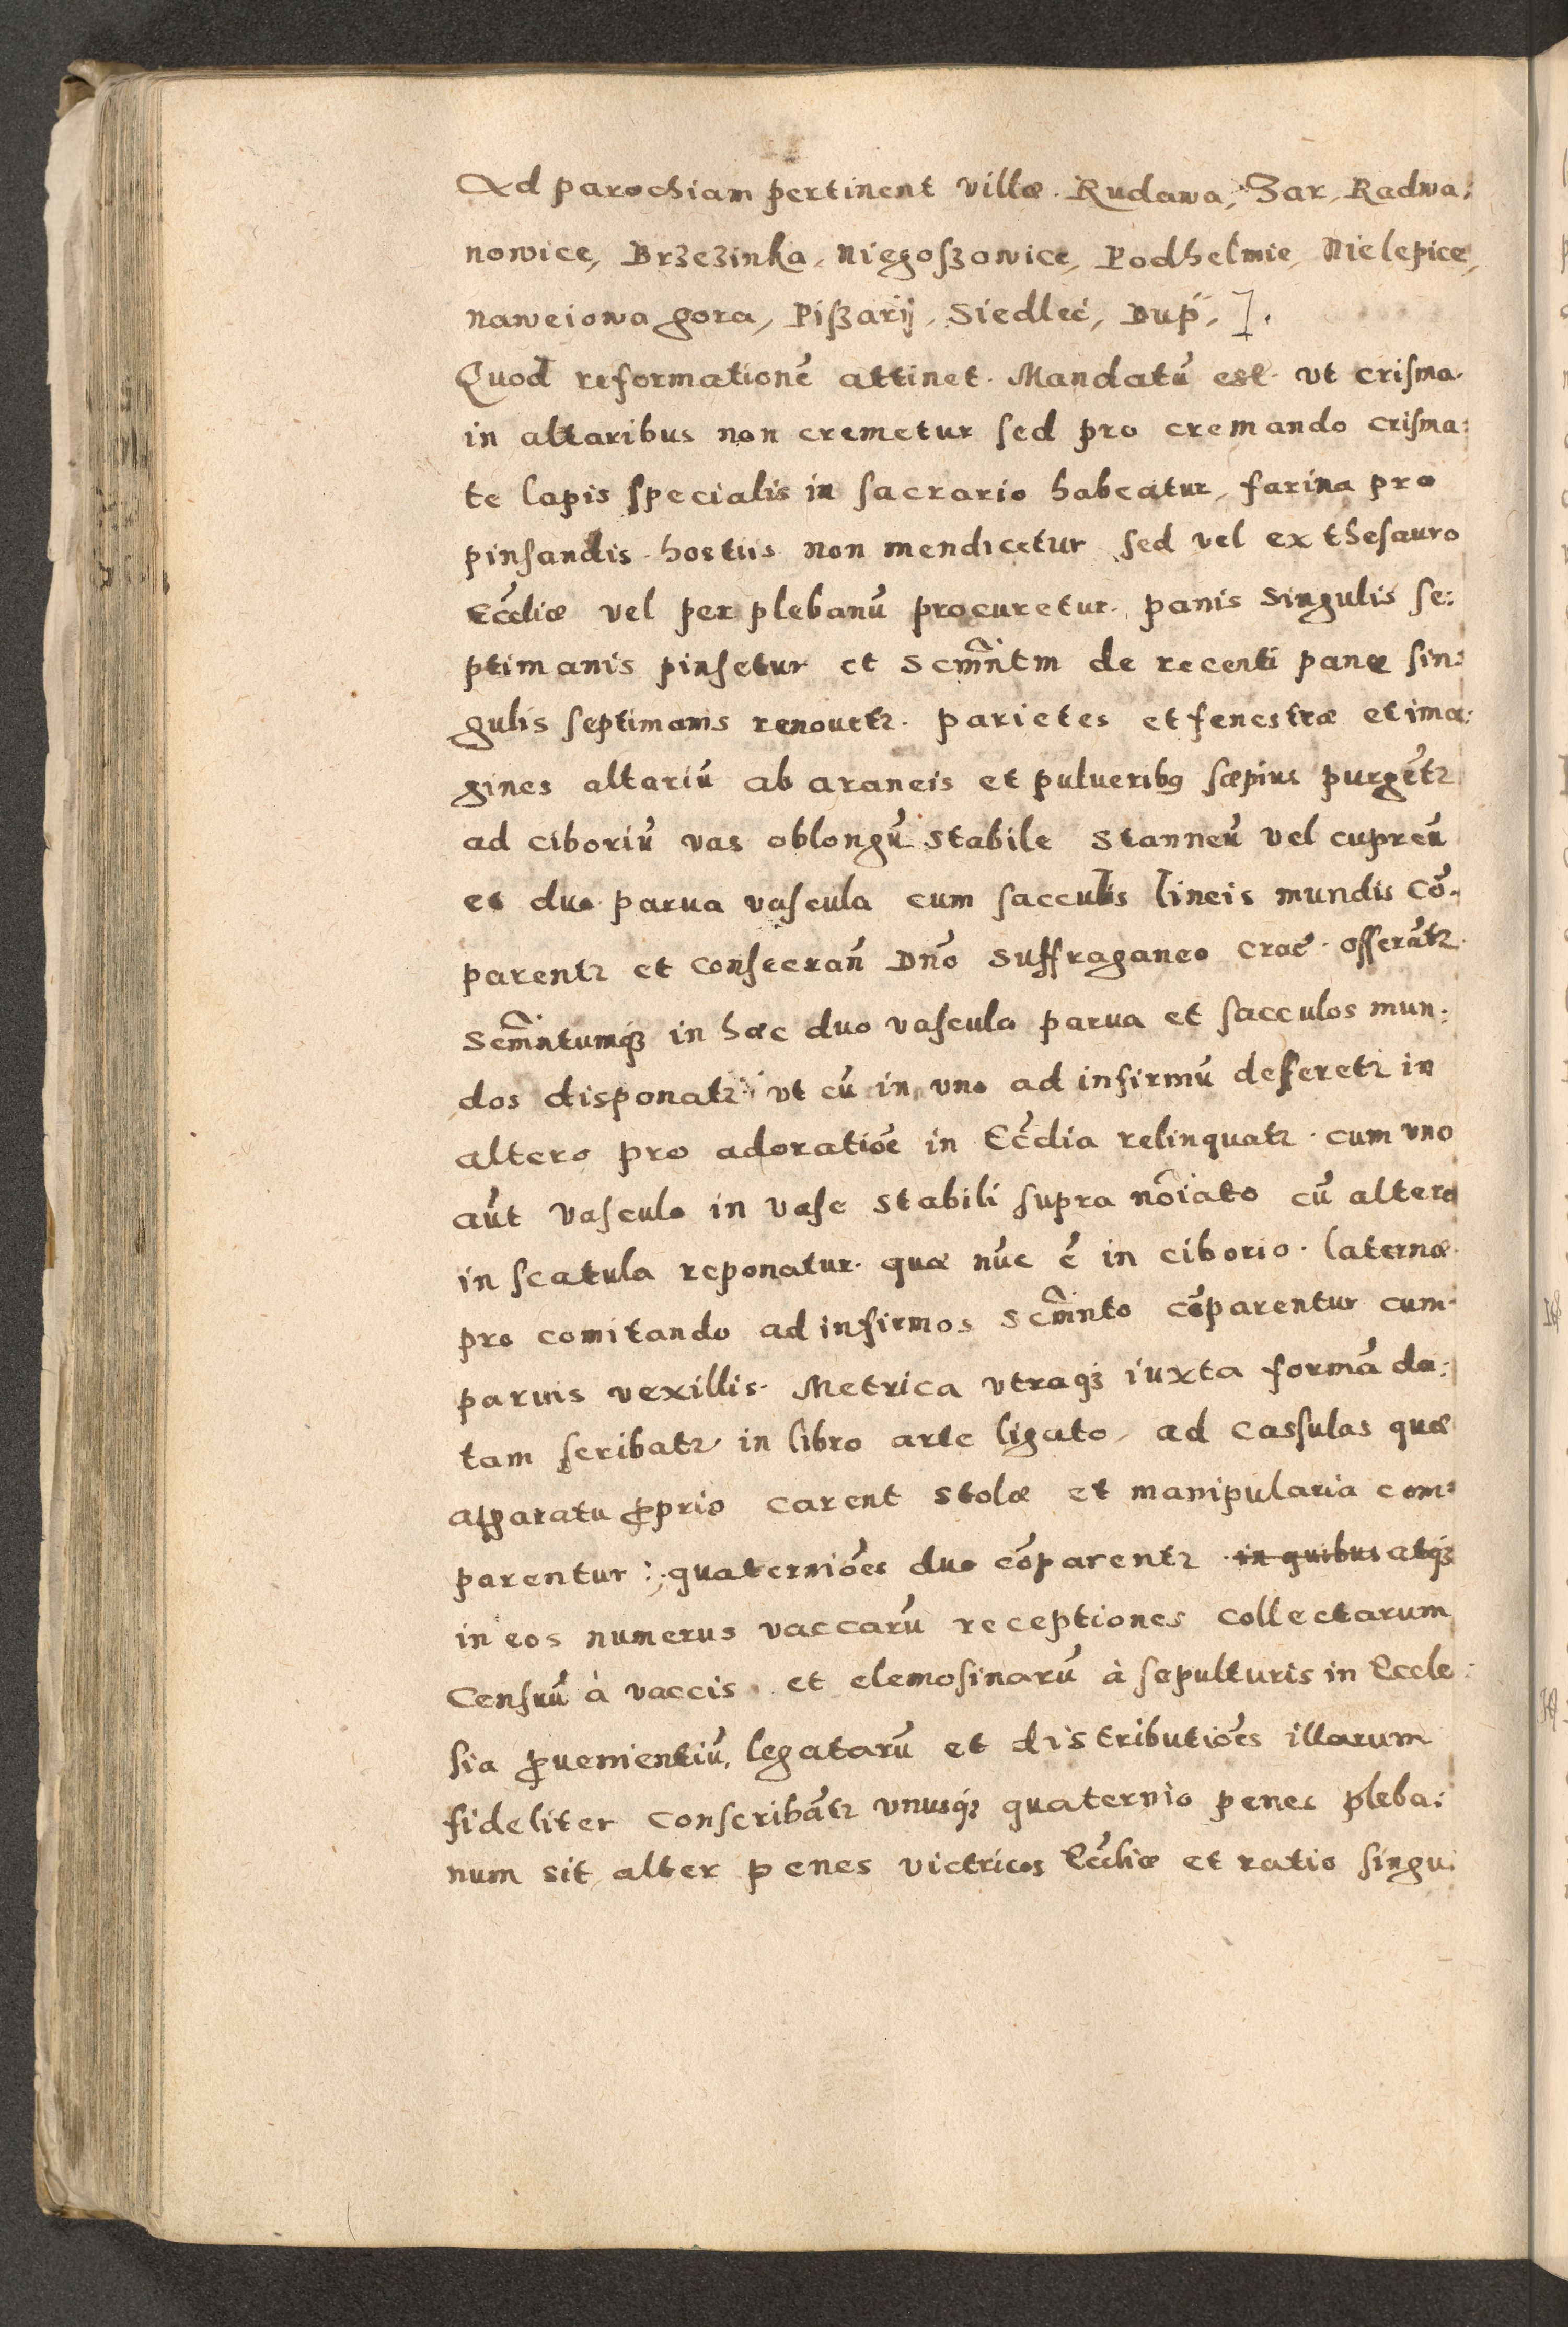 Ad parochiam pertinent villæ. Rudawa, Zar, Radwa:
nowice, Brzezinka, Niegoszowice, Podhelmie, Nielepice,
Naweiowa gora, Piszarij, Siedlec, Dup̈, ].
Quod reformationē attinet. Mandatū est. vt crisma.
in altaribus non cremetur sed pro cremando crisma:
te lapis specialis in sacrario habeatur, farina pro
pinsandis hostiis non mendicetur sed vel ex thesauro
Eccliæ vel per plebanū procuretur. panis Singulis se:
ptimanis pinsetur et Scm̃ntm de recenti pane sin:
gulis septimanis renouetr. parietes et fenestræ et ima:
gines altariū ab araneis et pulueribꝰ sæpius purgētr
ad ciboriū vas oblongū Stabile Stanneū vel cupreū
et duo parua vascula cum sacculis lineis mundis cō.
parentr et consecran̄ Dno̅ Suffraganeo Crac̄. offerātr.
Scm̃ntumqꝫ in hæc duo vascula parua et sacculos mun:
dos disponatr. vt cū in vno ad infirmū deferetr in
altero pro adoratiōe in Ecc̄lia relinquatr. cum vno
aūt vasculo in vase Stabili supra nōīato cū altero
in scatula reponatur. quæ nūc ē in ciborio. laternæ.
pro comitando ad infirmos Scm̃nto cōparentur cum.
paruis vexillis. Metrica vtraqꝫ iuxta formā da:
tam scribatr in libro arte ligato, ad cassulas quæ
apparatu ꝓprio carent Stolæ et manipularia com:
parentur :. quaterniōes duo cōparentr in quibus atqꝫ
in eos numerus vaccarū receptiones collectarum
Censuū à vaccis. et elemosinarū à sepulturis in Eccle:
sia ꝓuenientiū, legatarū et distributiōes illarum
fideliter conscribātr vnusqꝫ quaternio penes pleba:
num sit alter penes victricos Ecc̄liæ et ratio singu: